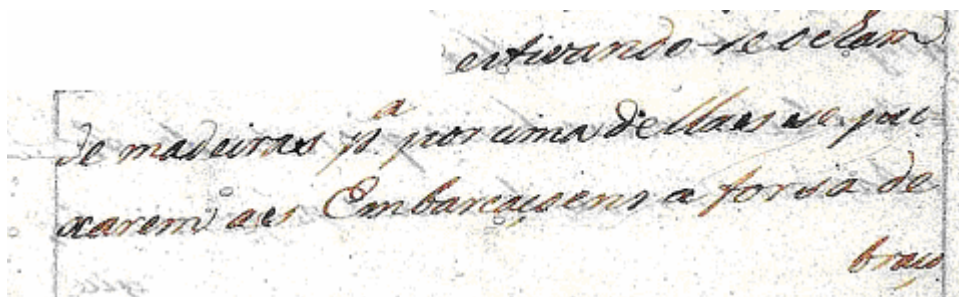 estivando-se o cham
de madeiras p.a por cima dellas se pu-
xarem as Embarcaçoens a forsa de
braço